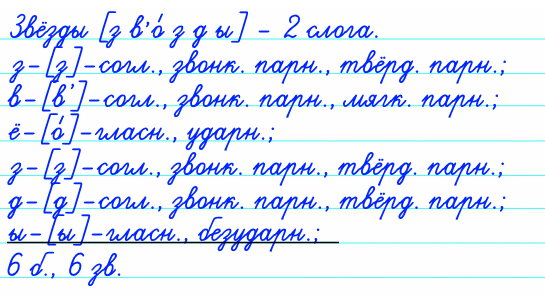 Звёзды [з в’о́ з д ы] – 2 слога.
з–[з]–согл., звонк. парн., твёрд. парн.;
в–[в’]–согл., звонк. парн., мягк. парн.;
ё–[о́]–гласн., ударн.;
з–[з]–согл., звонк. парн., твёрд. парн.;
д–[д]–согл., звонк. парн., твёрд. парн.;
ы–[ы]–гласн., безударн.;
6 б., 6 зв.